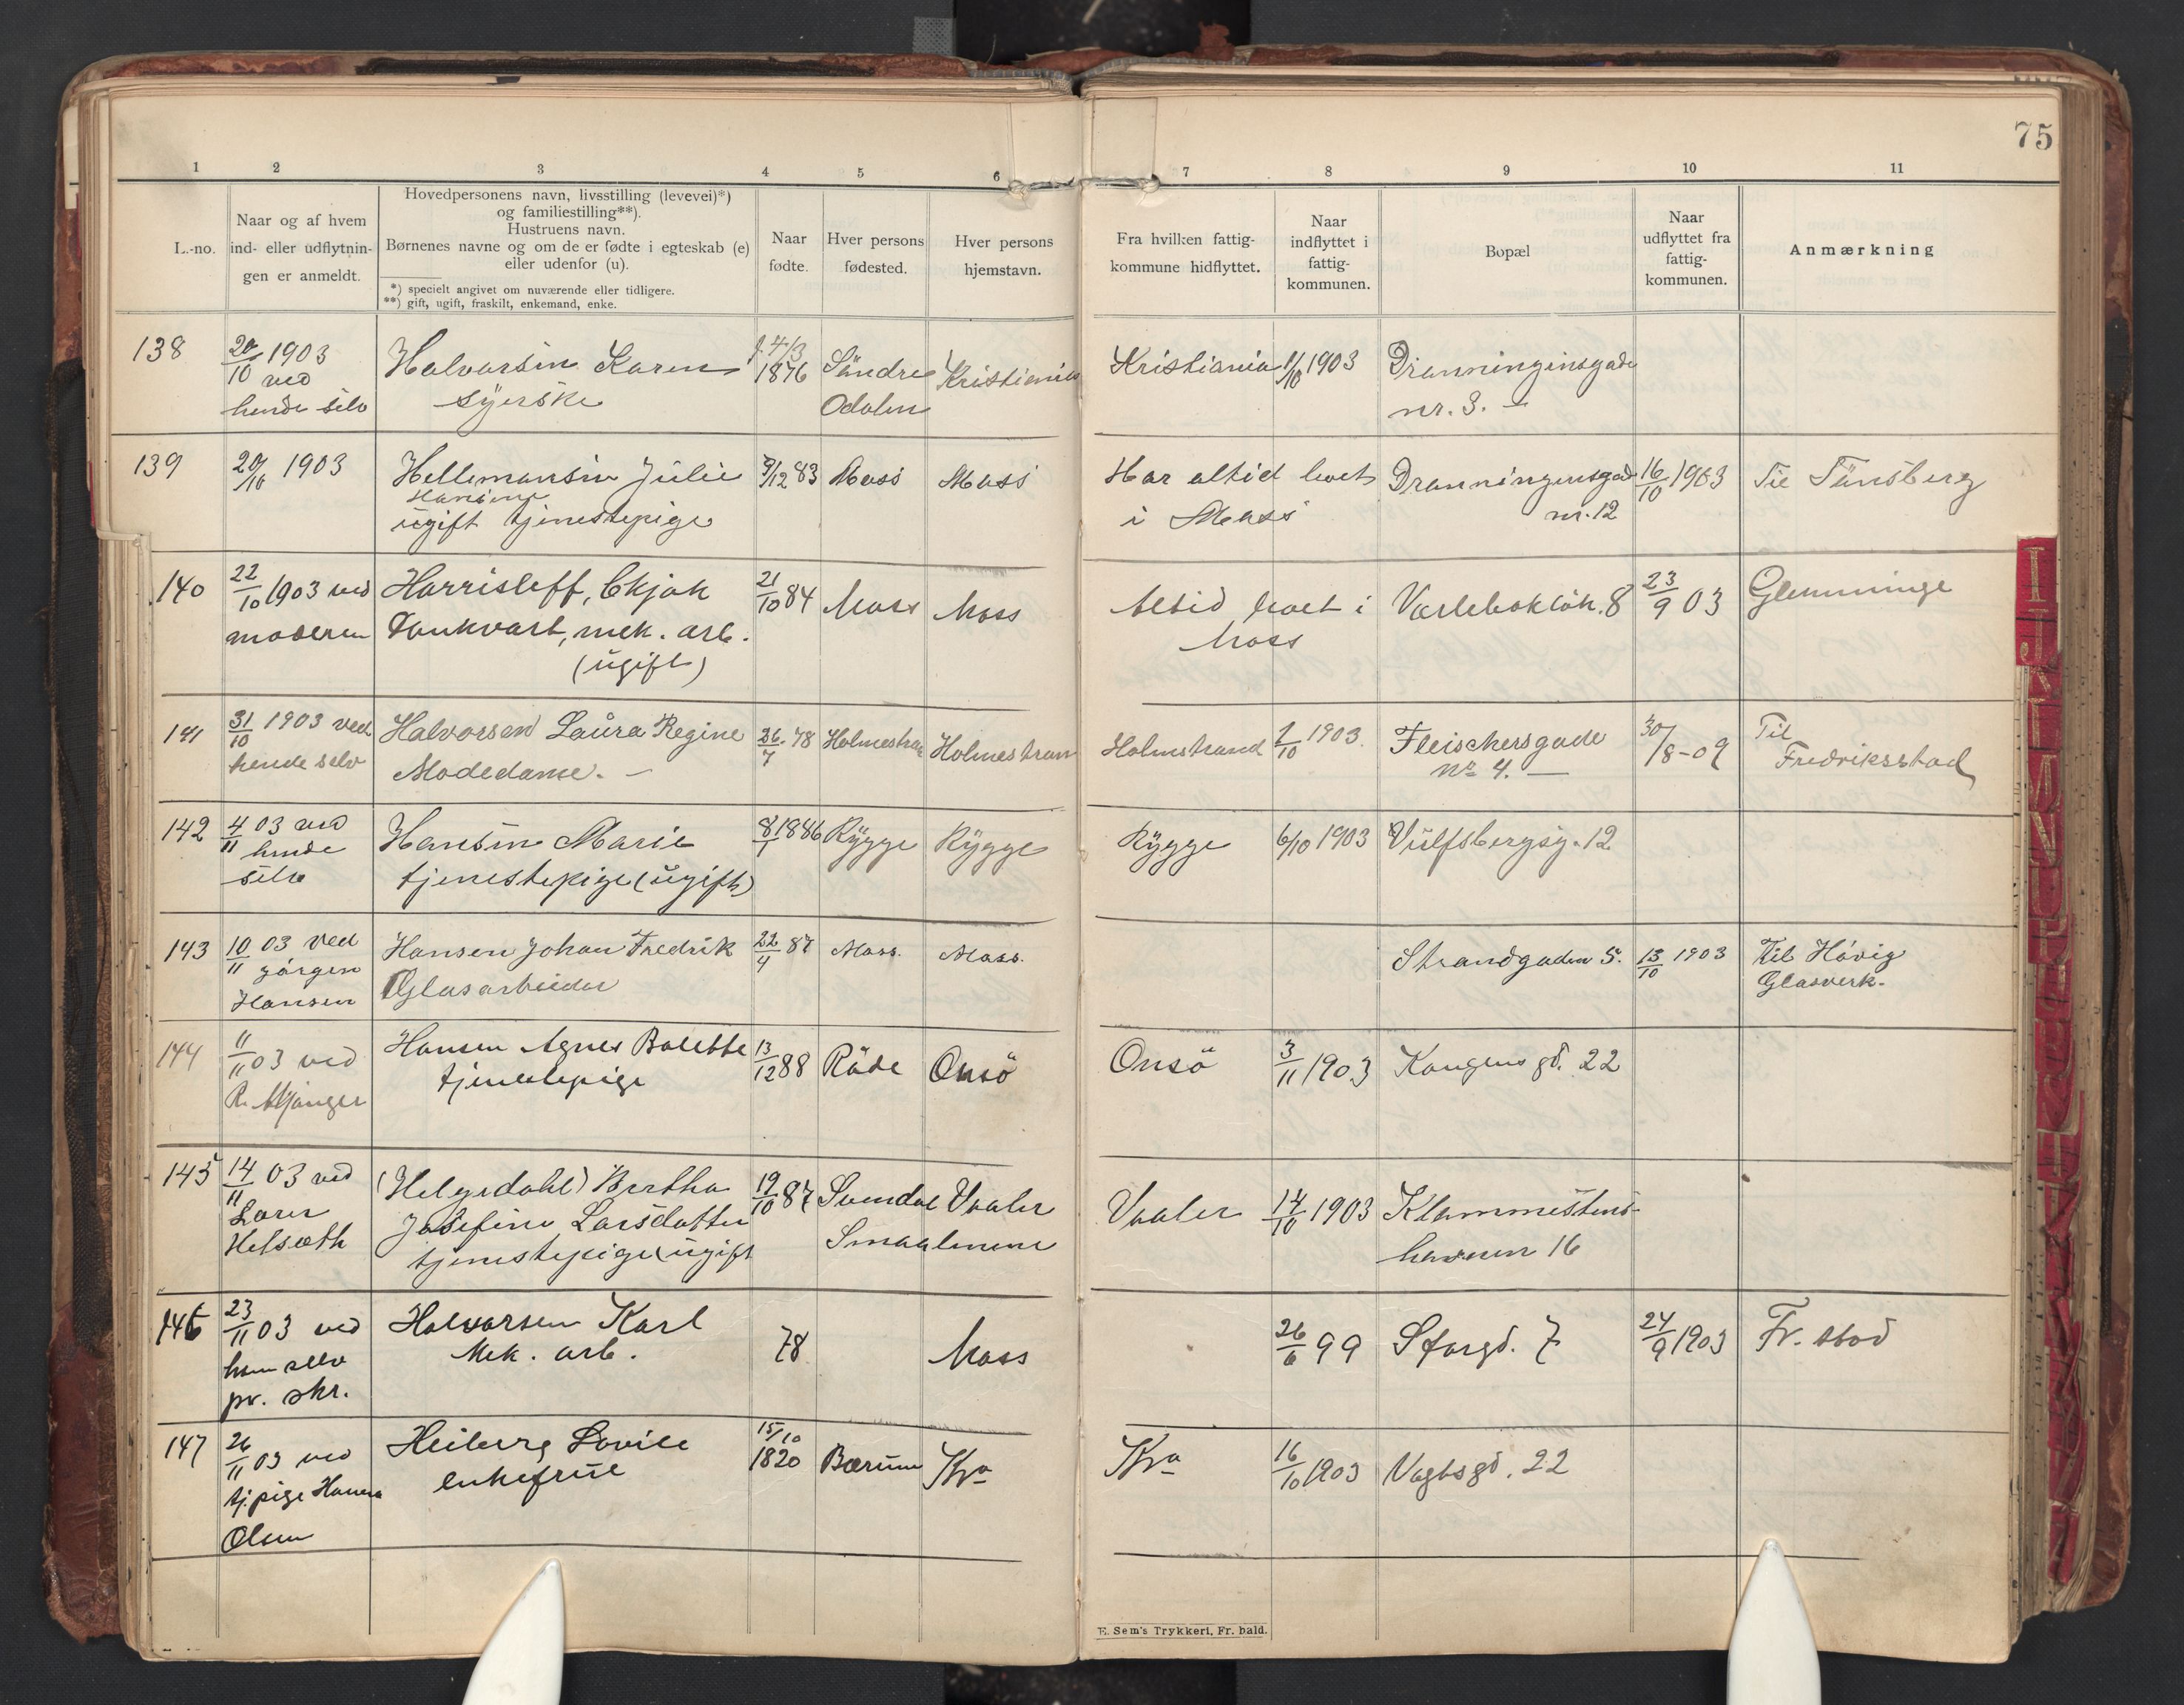 75
1 2 3 4 5 6 7 8 9 10 11
L.-no.
Naar og af hvem
ind- eller udflytnin-
gen er anmeldt.
Hovedpersonens navn, livsstilling (levevei)*)
og familiestilling**).
Hustruens navn.
Børnenes navne og om de er fødte i egteskab (e)
eller udenfor (u).
*) specielt angivet om nuværende eller tidligere.
**) gift, ugift, fraskilt, enkemand, enke.
Naar
fødte.
Hver persons
fødested.
Hver persons
hjemstavn.
Fra hvilken fattig-
kommune hidflyttet.
Naar
indflyttet i
fattig-
kommunen.
Bopæl
Naar
udflyttet fra
fattig-
kommunen.
Anmærkning
138
20/10 1903
ved
hende selv
Halvorsen Karen
Syerske
f. 4/3
1876
Søndre
Odalen
Kristiania
Kristiania
1/10 1903
Dronningensgade
nr. 3. –
139
20/10 1903
Hellemansen Julie
Hansine
ugift tjenestepige
9/12 83
Moss
Moss
Har altid boet
i Moss
Dronningensgade
nr. 12
16/10 1903
Til Tønsberg
140
22/10 1903 ved
moderen
Harrisleff,
Dankvart, mek. arb.
(ugift)
21/10 84
Moss
Moss
Altid boet i
Moss
8
23/9 03
Glemminge
141
31/10 1903 ved
hende selv
Halvorsen Laura Regine
Modedame. –
26/7 78
Holmestrand
Holmestrand
Holmstrand
1903.
Fleischersgade
No 4. –
30/8-09
Til
Fredriksstad
142
4/11 03 ved
hende
selv
Hansen Marie
tjenestepige (ugift)
8/1 1886
Rygge
Rygge
Rygge
6/10 1903
Vulfsbergsg. 12
143
10/11 03 ved
Jörgen
Hansen
Hansen Johan Fredrik
Glasarbeider
22/4 87
Moss.
Moss.
Strandgaden 5.
13/10 1903
Til Hövig
Glasverk.
144
11/11 03 ved
R. Mjanger
Hansen Agnes Bolette
tjenestepige
13/12 88
Råde
Onsö
Onsö
3/11 1903
Kongens gd. 22
145
14/11 03 ved
Lars
Helseth
(Helgedahl) Bertha
Josefine Larsdatter
tjenestepige (ugift
19/10 87
Svendal Vaaler
Smaalenene
Vaaler
14/10 1903
Klommestens-
havnen 16
146
23/11 03 ved
ham selv
pr. skr.
Halvorsen Karl
Mek. arb.
78
Moss
26/6 99
Storgd. 7
24/9 1903
Fr. stad
147
26/11 03 ved
tj.pige Hanna
Olsen
Heiberg Lovise
enkefrue
15/10
1820
Bærum
Kra
Kra
16/10 1903
Vogtsgd. 22
E. Sem's Trykkeri, Fr. hald.